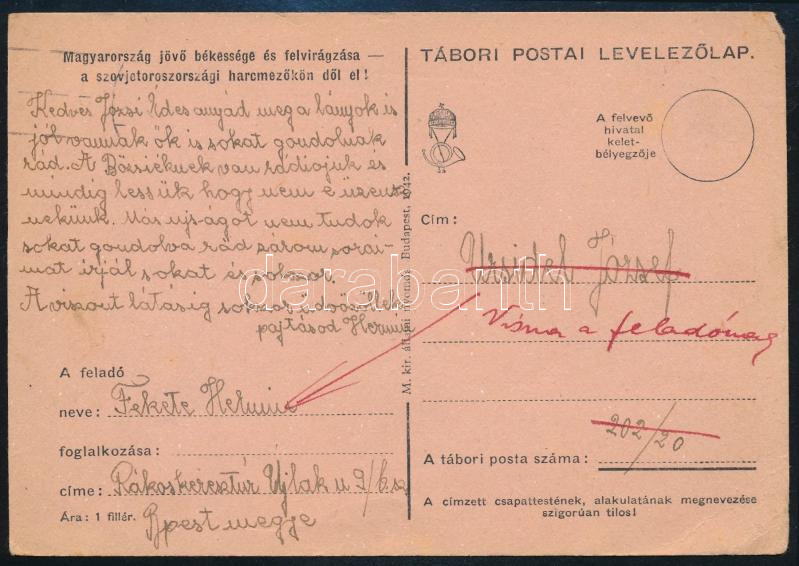 Magyarország jövő békessége és felvirágzása —
a szovjetoroszországi harcmezőkön dől el!
Kedves Józsi Édesanyád meg a lányok is
jól vannak ők is sokat gondolnak
rád. A Bözsiéknek van rádiójuk és
mindig lessük hogy nem e üzensz
nekünk. Más ujságot nem tudok
sokat gondolva rád zárom sorai-
mat irjál sokat és sokszor.
A viszont látásig sokszor üdvözöllek
pajtásod Hermin
A feladó
neve: Fekete Hermin
foglalkozása:
címe: Rákoskeresztúr Ujlak u 9/b sz
Ppest megye
Ára: 1 fillér.
M. kir. állami nyomda, Budapest, 1942.
TÁBORI POSTAI LEVELEZŐLAP.
A felvevő
hivatal
kelet-
bélyegzője
Cím:
József
Vissza a feladónak
202/20
A tábori posta száma:
A címzett csapattestének, alakulatának megnevezése
szigorúan tilos!
darabanth